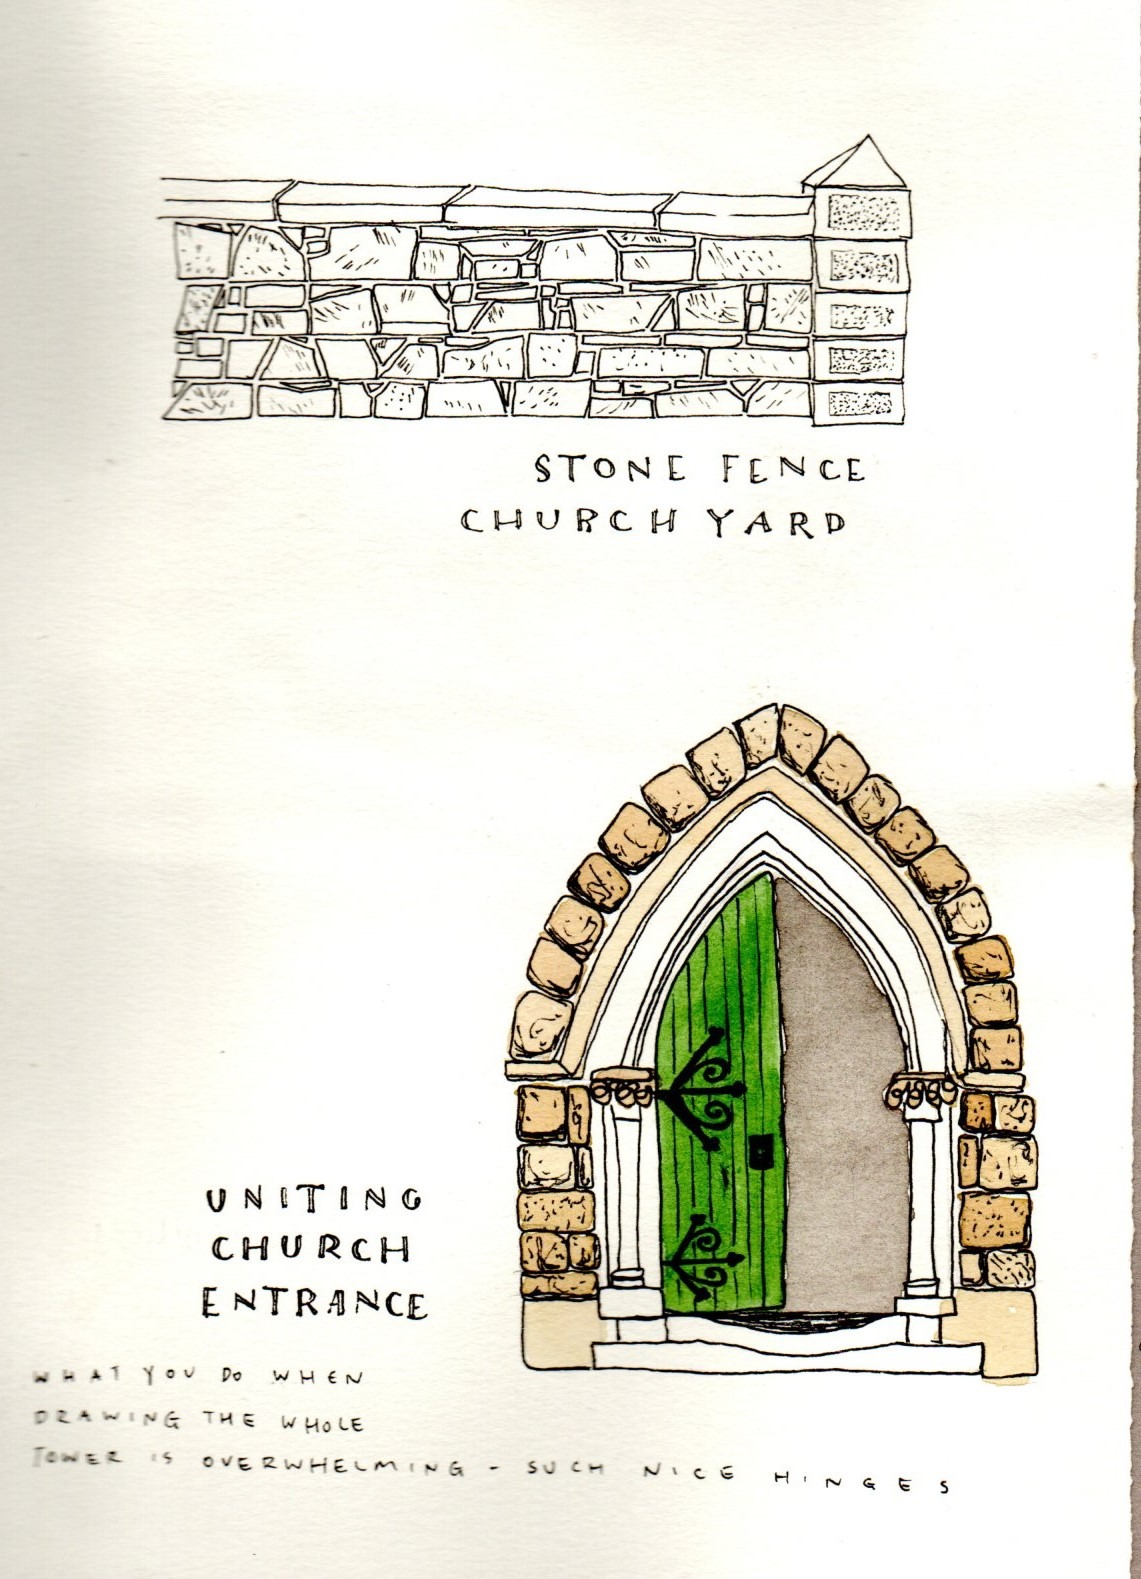 STONE FENCE
CHURCH YARD
UNITING
CHURCH
ENTRANCE
WHAT YOU DO WHEN
DRAWING THE WHOLE
TOWER IS OVERWHELMING - SUCH NICE HINGES